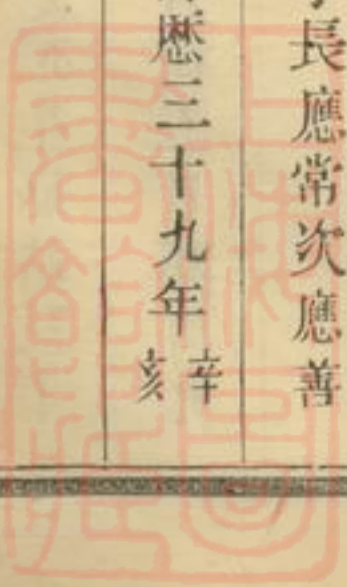 長應常次應善
曆三十九年辛亥